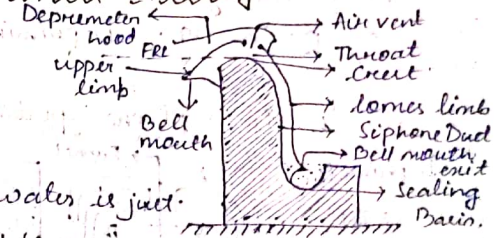 Depremeter
hood
FRL
upper
limb
Bell
mouth
Air vent
Throat
Crest
lomes limb
Siphone Duct
Bell mouth
exit
Sealing
Basin.
water is just.